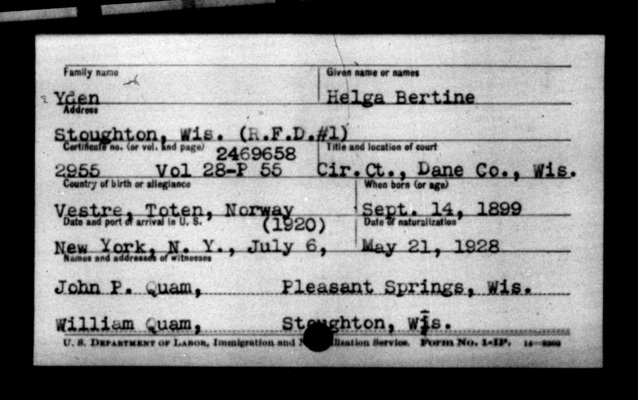 Family name Given name or names
Yden Helga Bertine
Address
Stoughton, Wis. (R.F.D.#1)
Certificate no. (or vol. and page) 2469658 Title and location of court
2955 Vol 28-P 55 Cir.Ct., Dane Co., Wis.
Country of birth or allegiance When born (or age)
Vestre, Toten, Norway Sept. 14, 1899
Date and port of arrival in U. S. (1920) Date of naturalization
New York, N. Y., July 6, May 21, 1928
Names and addresses of witnesses
John P. Quam, Pleasant Springs, Wis.
William Quam, Stoughton, Wis.
U. S. Department of Labor, Immigration and Service. Form No. 1-IP.